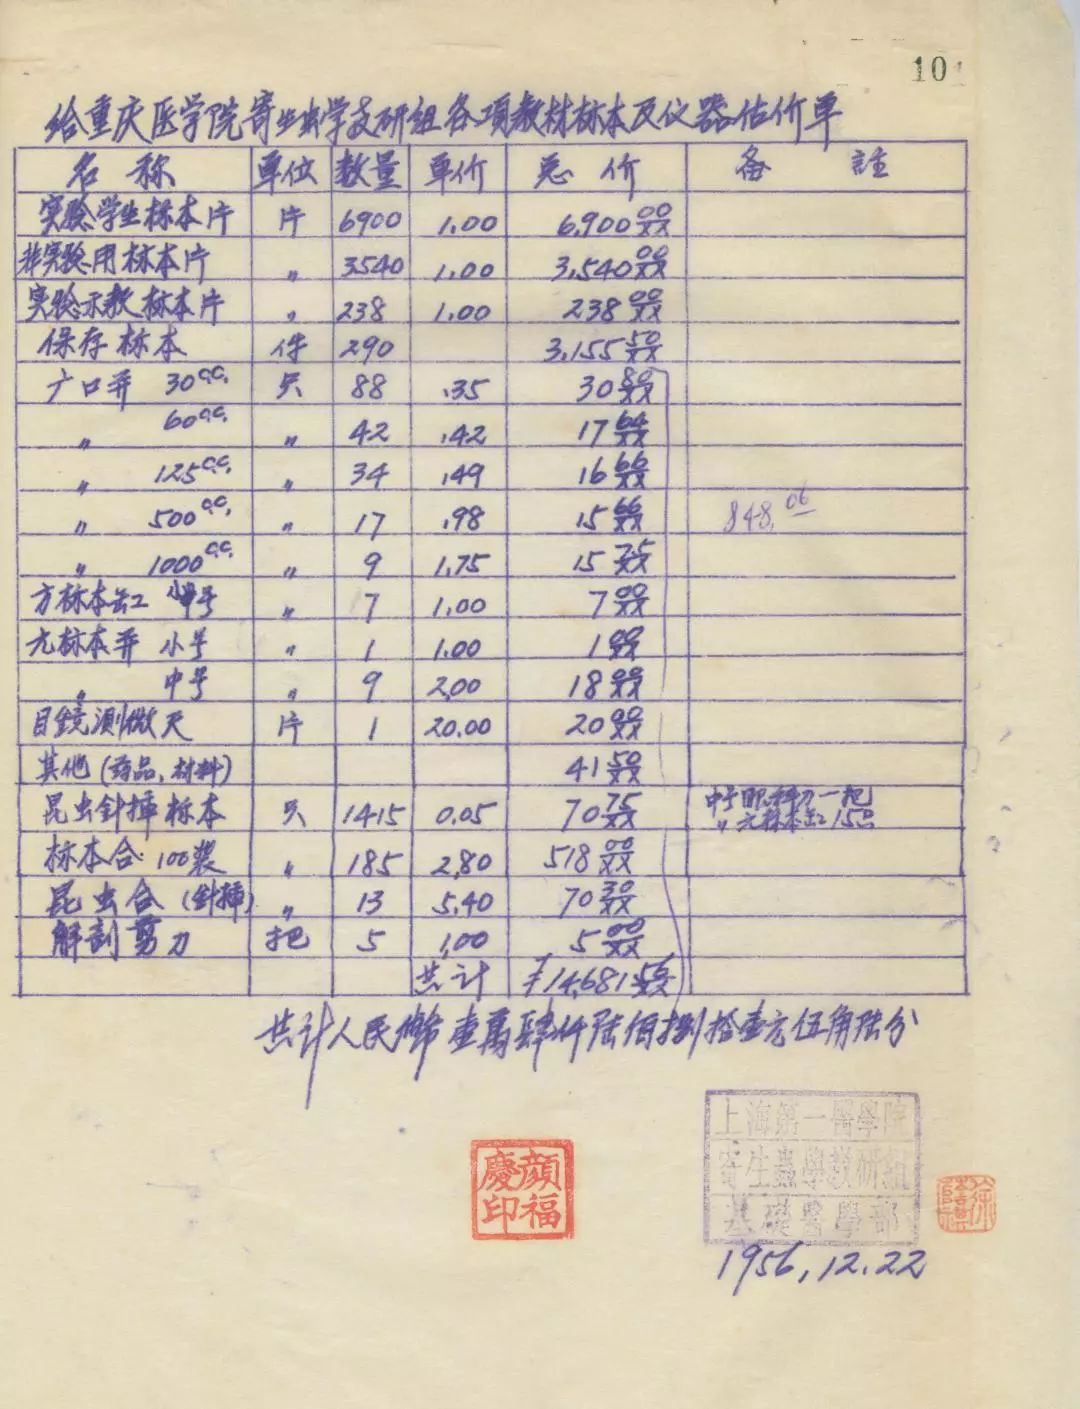 10
给重庆医学院寄生虫学教研组各项教材标本及仪器估价单
名称 单位 数量 单价 总价 备註
实验学生标本片 片 6900 1.00 6,900.00
非实验用标本片 〃 3540 1.00 3,540.00
实验示教标本片 〃 238 1.00 238.00
保存标本 件 290 3,155.50
广口并 30c.c. 只 88 .35 30.80
〃 60c.c. 〃 42 .42 17.64
〃 125c.c. 〃 34 .49 16.66
〃 500c.c. 〃 17 .98 15.66 848.06
〃 1000c.c. 〃 9 1.75 15.75
方标本缸 小号 〃 7 1.00 7.00
元标本并 小号 〃 1 1.00 1.00
〃 中号 〃 9 2.00 18.00
目鏡測微尺 片 1 20.00 20.00
其他(药品、材料) 41.50
昆虫針揷标本 只 1415 0.05 70.75 中号眼科刀一把
〃元标本缸15只
标本合 100装 〃 185 2.80 518.00
昆虫合(針揷) 〃 13 5.40 70.30
解剖剪刀 把 5 1.00 5.00
共计 ¥14,681.56
共计人民币壹萬肆仟陆佰捌拾壹元伍角陆分
顔福慶印
上海第一醫學院
寄生蟲學教研組
基礎醫學部
1956.12.22